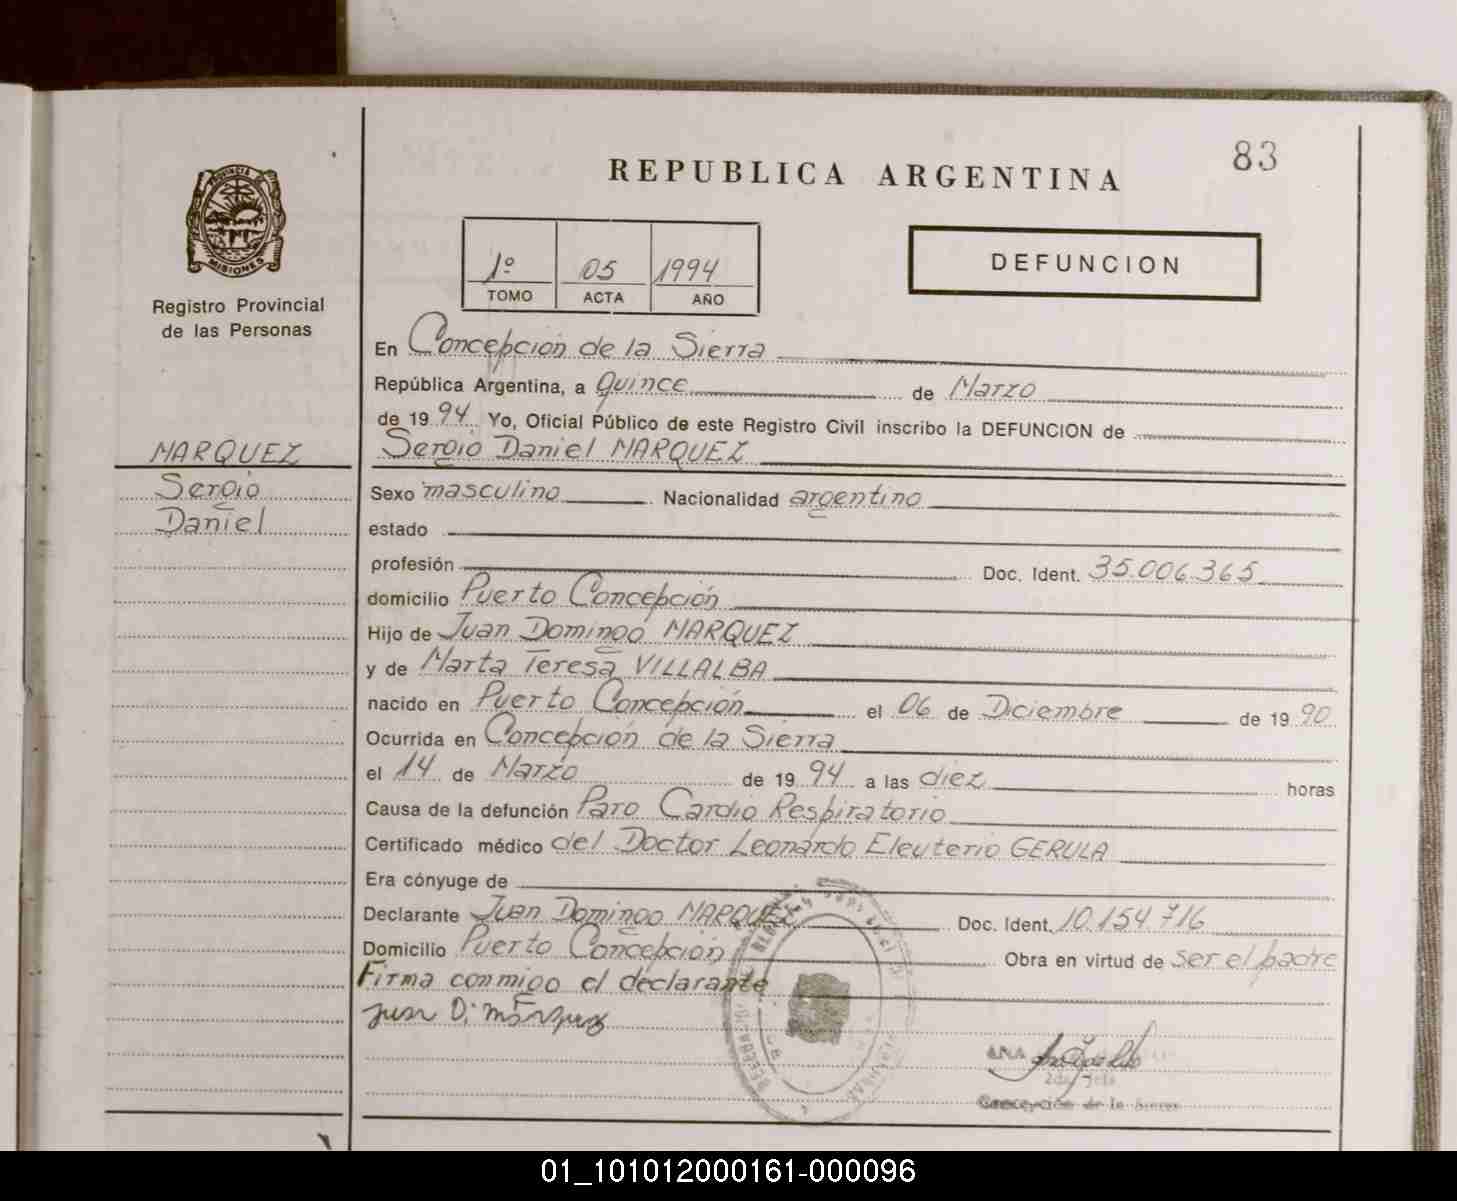 83
REPUBLICA ARGENTINA
PROVINCIA DE
MISIONES
Registro Provincial
de las Personas
1º 05 1994
TOMO ACTA AÑO
DEFUNCION
En Concepción de la Sierra
República Argentina, a quince de Marzo
de 1994 Yo, Oficial Público de este Registro Civil inscribo la DEFUNCION de
MARQUEZ
Sergio
Daniel
Sergio Daniel MARQUEZ
Sexo masculino Nacionalidad argentino
estado
profesión Doc. Ident. 35.006.365
domicilio Puerto Concepción
Hijo de Juan Domingo MARQUEZ
y de Marta Teresa VILLALBA
nacido en Puerto Concepción el 06 de Diciembre de 1990
Ocurrida en Concepción de la Sierra
el 14 de Marzo de 1994 a las diez horas
Causa de la defunción Paro Cardio Respiratorio
Certificado médico del Doctor Leonardo Eleuterio GERULA
Era cónyuge de
Declarante Juan Domingo MARQUEZ Doc. Ident. 10.154.716
Domicilio Puerto Concepción Obra en virtud de ser el padre
Firma conmigo el declarante
Juan D. Márquez
ANA
2da. Jefa
Concepción de la Sierra
01_101012000161-000096